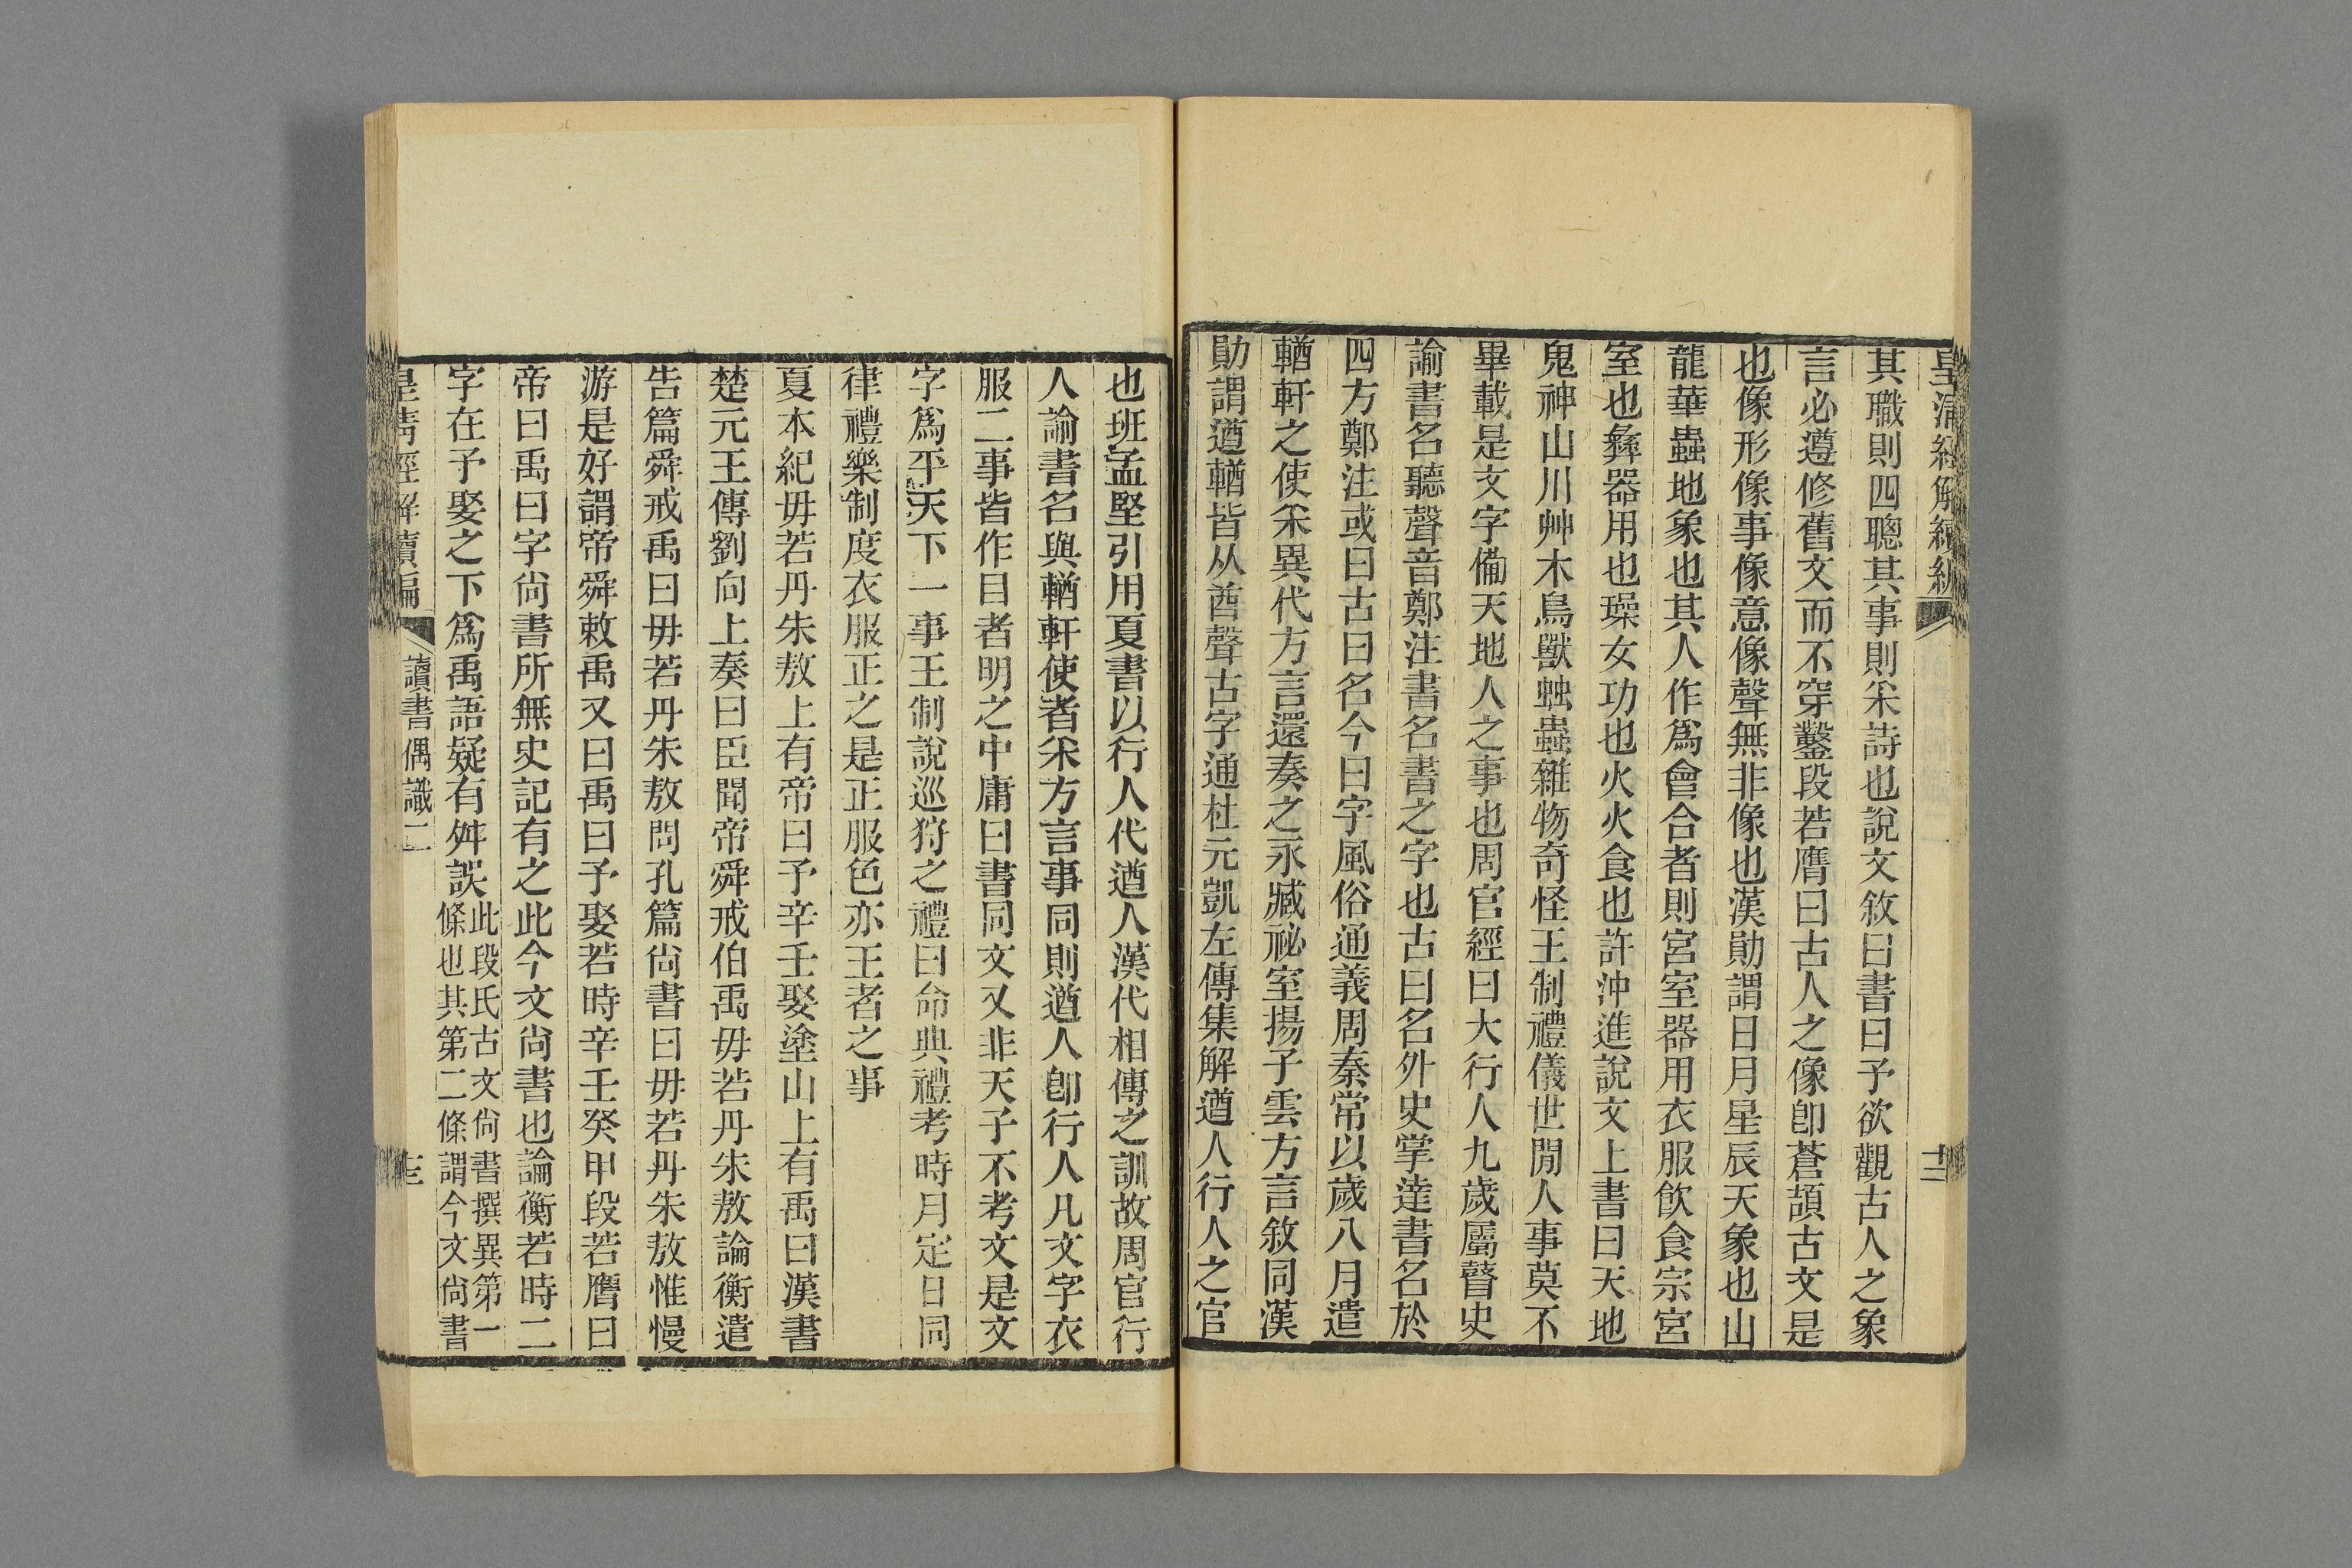 皇清經解續編
十二
其職則四聰其事則釆詩也說文敘曰書曰予欲觀古人之象
言必遵修舊文而不穿鑿段若膺曰古人之像卽蒼頡古文是
也像形像事像意像聲無非像也漢勛謂日月星辰天象也山
龍華蟲地象也其人作爲會合者則宮室器用衣服飮食宗宮
室也彝器用也璪女功也火火食也許沖進說文上書曰天地
鬼神山川艸木鳥獸䖵蟲雜物奇怪王制禮儀世閒人事莫不
畢載是文字僃天地人之事也周官經曰大行人九歲屬瞽史
諭書名聽聲音鄭注書名書之字也古曰名外史掌達書名於
四方鄭注或曰古曰名今曰字風俗通義周秦常以歲八月遣
輶軒之使釆異代方言還奏之永臧祕室揚子雲方言敘同漢
勛謂遒輶皆从酋聲古字通杜元凱左傳集解遒人行人之官
也班孟堅引用夏書以行人代遒人漢代相傳之訓故周官行
人諭書名與輶軒使者釆方言事同則遒人卽行人凡文字衣
服二事皆作目者明之中庸曰書同文又非天子不考文是文
字爲平天下一事王制說巡狩之禮曰命典禮考時月定日同
律禮樂制度衣服正之是正服色亦王者之事
夏本紀毋若丹朱敖上有帝曰予辛壬娶塗山上有禹曰漢書
楚元王傳劉向上奏曰臣聞帝舜戒伯禹毋若丹朱敖論衡遣
告篇舜戒禹曰毋若丹朱敖問孔篇尙書曰毋若丹朱敖惟慢
游是好謂帝舜敕禹又曰禹曰予娶若時辛壬癸甲段若膺曰
帝曰禹曰字尙書所無史記有之此今文尙書也論衡若時二
字在予娶之下爲禹語疑有舛誤此段氏古文尙書撰異第一
條也其第二條謂今文尙書
皇清經解續編
讀書偶識二
十三